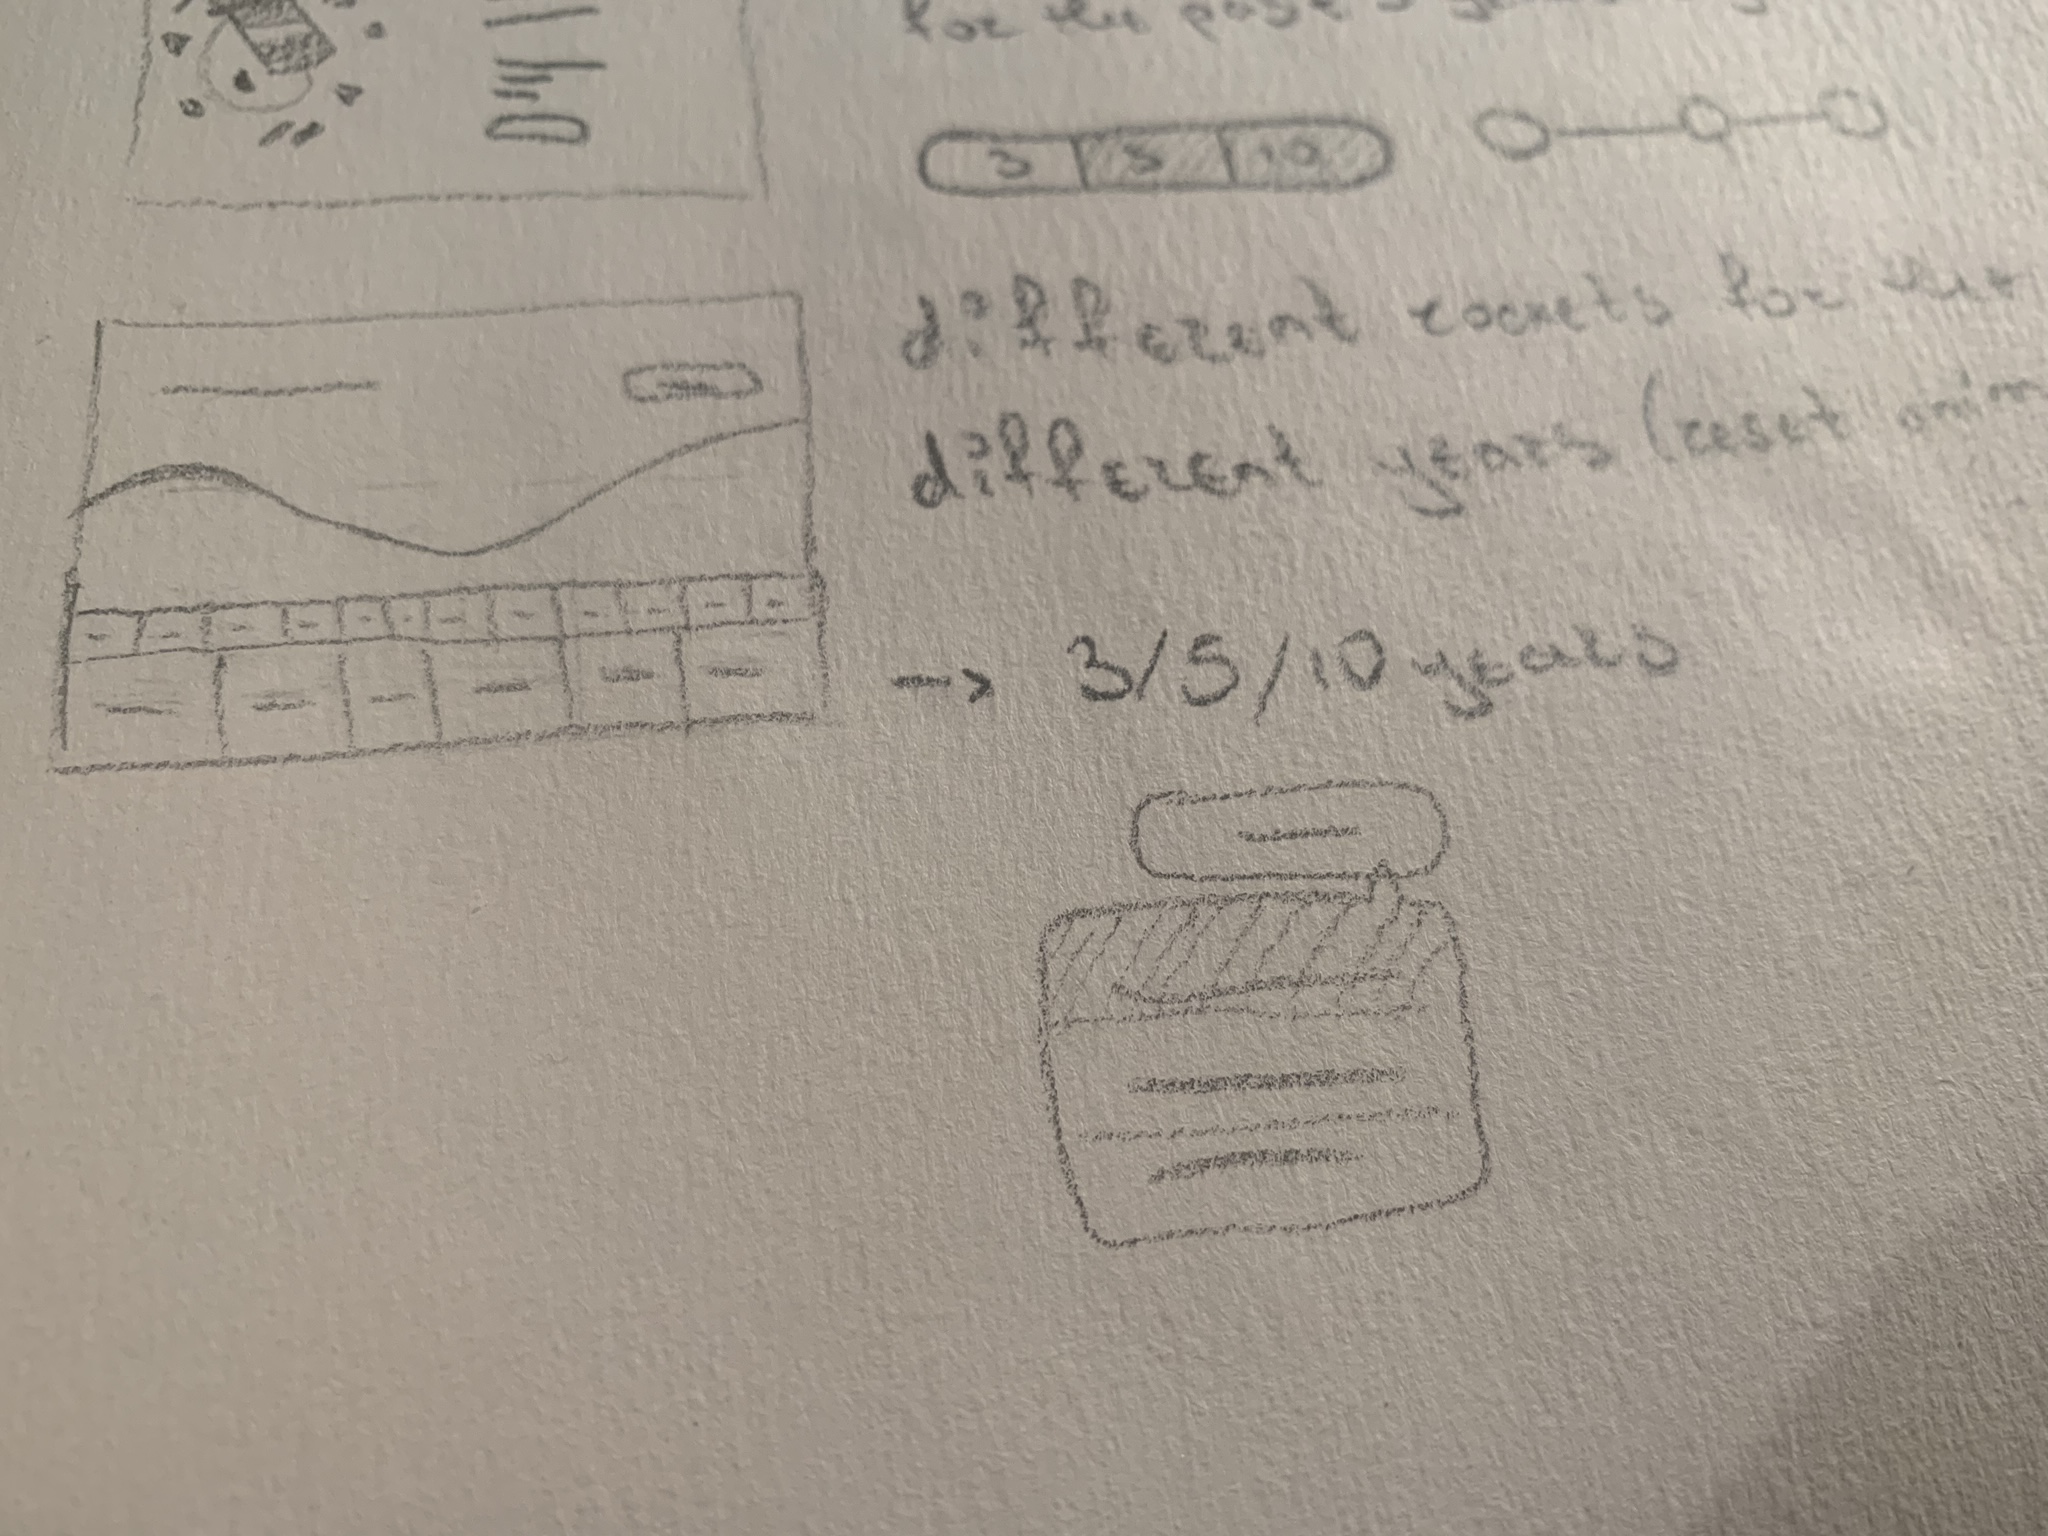 for the page
3 5 10
different rockets for the
different years (reset anim
-> 3/5/10 years